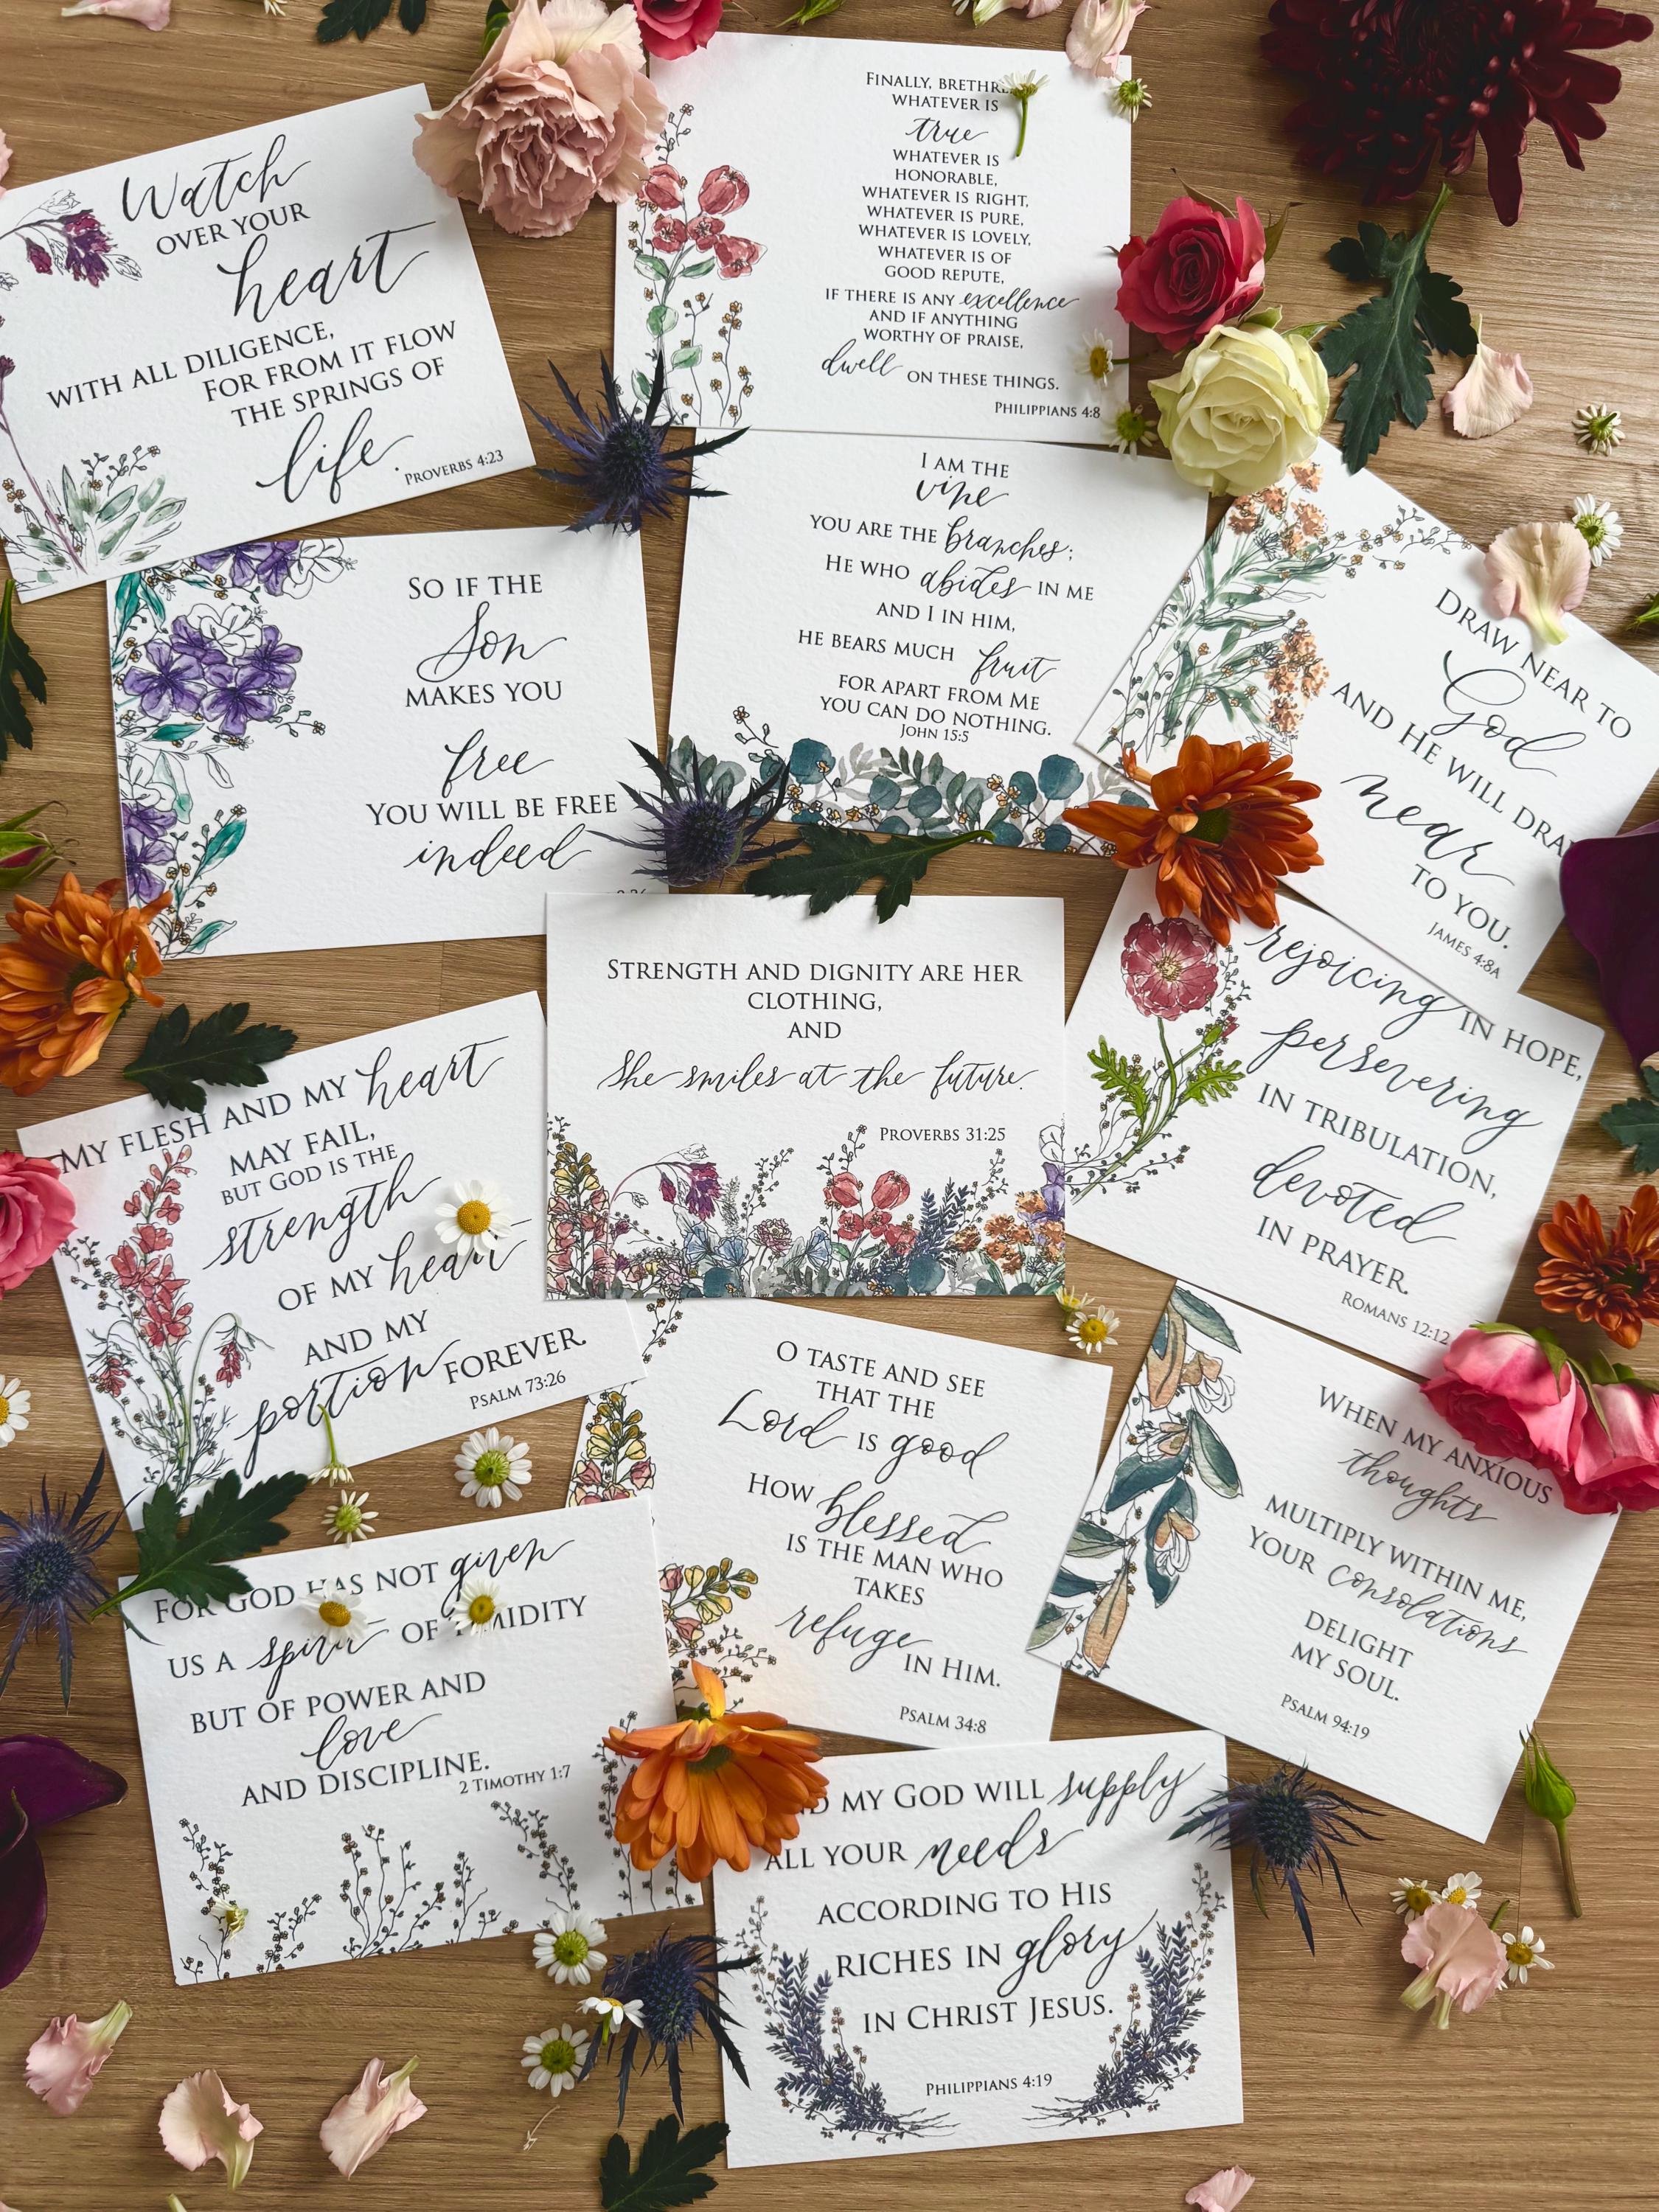 Watch
OVER YOUR
heart
WITH ALL DILIGENCE,
FOR FROM IT FLOW
THE SPRINGS OF
life.
PROVERBS 4:23
FINALLY,
WHATEVER IS
true
WHATEVER IS
HONORABLE,
WHATEVER IS RIGHT,
WHATEVER IS PURE,
WHATEVER IS LOVELY,
WHATEVER IS OF
GOOD REPUTE,
IF THERE IS ANY excellence
AND IF ANYTHING
WORTHY OF PRAISE,
dwell ON THESE THINGS.
PHILIPPIANS 4:8
SO IF THE
Son
MAKES YOU
free
YOU WILL BE FREE
indeed
I AM THE
vine
YOU ARE THE branches;
HE WHO abides IN ME
AND I IN HIM,
HE BEARS MUCH fruit
FOR APART FROM ME
YOU CAN DO NOTHING.
JOHN 15:5
DRAW NEAR TO
God
AND HE WILL DRAW
near
TO YOU.
JAMES 4:8A
STRENGTH AND DIGNITY ARE HER
CLOTHING,
AND
She smiles at the future.
PROVERBS 31:25
rejoicing IN HOPE,
persevering
IN TRIBULATION,
devoted
IN PRAYER.
ROMANS 12:12
MY FLESH AND MY heart
MAY FAIL,
BUT GOD IS THE
strength
OF MY heart
AND MY
portion FOREVER.
PSALM 73:26
O TASTE AND SEE
THAT THE
Lord IS good
HOW blessed
IS THE MAN WHO
TAKES
refuge
IN HIM.
PSALM 34:8
WHEN MY ANXIOUS
thoughts
MULTIPLY WITHIN ME,
YOUR consolations
DELIGHT
MY SOUL.
PSALM 94:19
FOR GOD HAS NOT given
US A spirit OF TIMIDITY
BUT OF POWER AND
love
AND DISCIPLINE.
2 TIMOTHY 1:7
MY GOD WILL supply
ALL YOUR needs
ACCORDING TO HIS
RICHES IN glory
IN CHRIST JESUS.
PHILIPPIANS 4:19